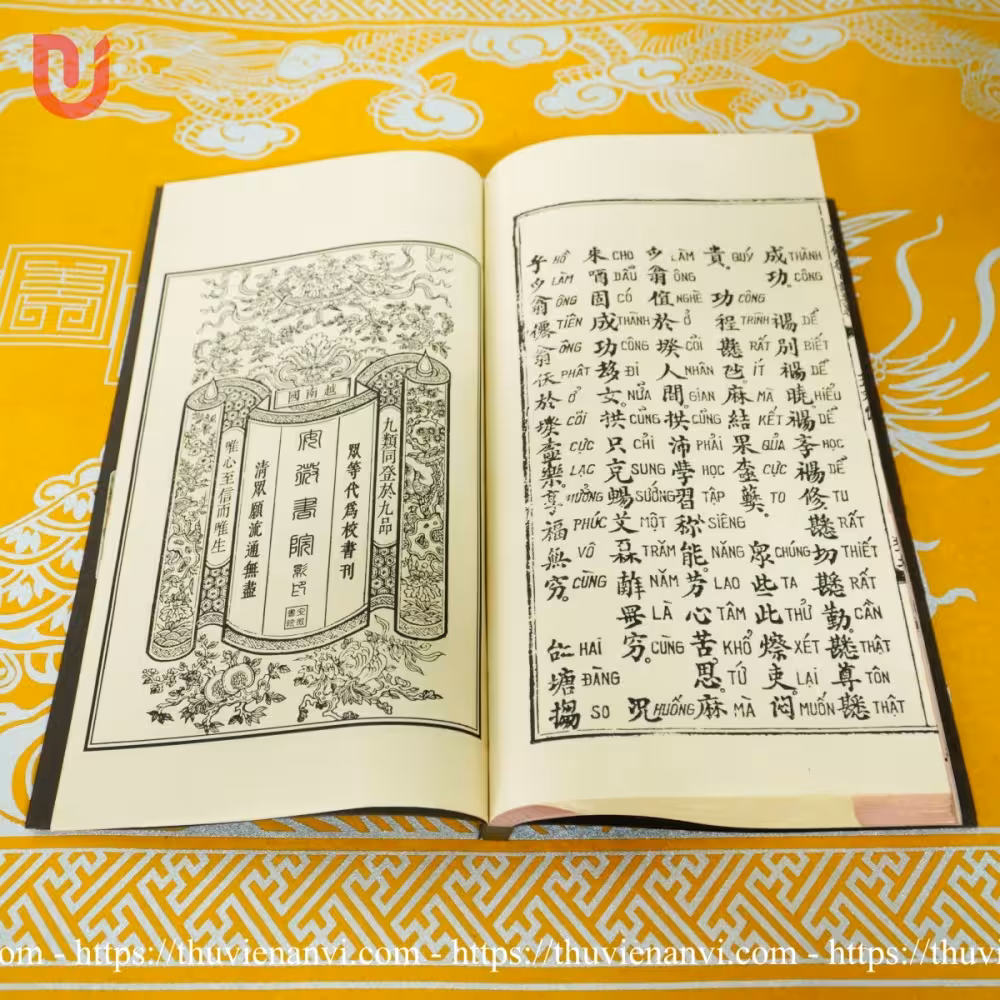 越南國
九類同登於九品
眾等代為校書刊
書院影印
清眾願流通無盡
唯心至信而唯生
成 THÀNH 功 CÔNG DỄ 別 BIẾT DỄ 曉 HIỂU DỄ HỌC DỄ 修 TU RẤT 切 THIẾT RẤT 勤 CẦN THẬT 尊 TÔN THẬT
貴 QUÝ 功 CÔNG 程 TRÌNH RẤT ÍT 麻 MÀ 結 KẾT 果 QUẢ CỰC TO 眾 CHÚNG 些 TA 此 THỬ XÉT 吏 LẠI 悶 MUỐN
LÀM 翁 ÔNG 值 NGHÈ 於 Ở CÕI 人 NHÂN 間 GIAN 拱 CŨNG 沛 PHẢI HỌC 習 TẬP SIÊNG 能 NĂNG 劳 LAO 心 TÂM 苦 KHỔ 思 TỨ 麻 MÀ
朱 CHO DẨU 固 CÓ 成 THÀNH 功 CÔNG ĐI NỮA 拱 CŨNG 只 CHỈ SUNG SƯỚNG MỘT TRĂM NĂM LÀ 穷 CÙNG 况 HUỐNG
乎 HỒ LÀM 翁 ÔNG TIÊN 翁 ÔNG PHẬT 於 Ở CÕI CỰC 樂 LẠC 享 HƯỞNG 福 PHÚC 無 VÔ 穷 CÙNG HAI 塘 ĐÀNG SO
https://thuvienanvi.com - https://thuvienanvi.com - https://thuvi